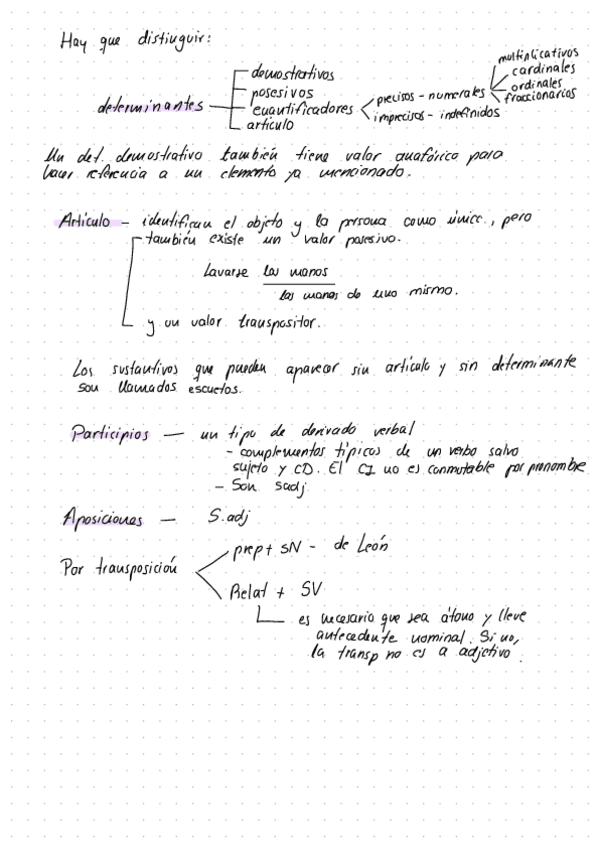 Hay que distinguir:
multiplicativos
cardinales
ordinales
fraccionarios
demostrativos
posesivos
determinantes
cuantificadores
precisos - numerales
imprecisos - indefinidos
artículo
Un det. demostrativo también tiene valor anafórico para
hacer referencia a un elemento ya mencionado.
Artículo - identifican el objeto y la persona como único, pero
también existe un valor posesivo.
Lavarse las manos
las manos de uno mismo.
y un valor transpositor.
Los sustantivos que pueden aparecer sin artículo y sin determinante
son llamados escuetos.
Participios — un tipo de derivado verbal
- complementos típicos de un verbo salvo
sujeto y CD. El CI no es conmutable por pronombre
- Son sadj
Aposiciones — S.adj
prep + SN - de León
Por transposición
Relat + SV
es necesario que sea átono y lleve
antecedente nominal. Si no,
la transp no es a adjetivo.